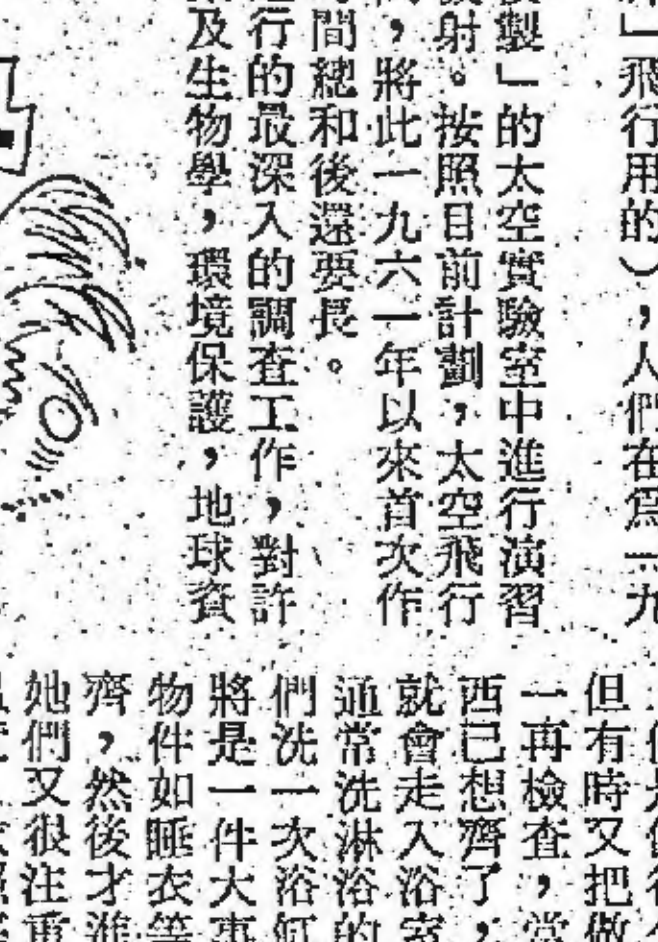 」飛行用的），人們在爲一九
製」的太空實驗室中進行演習
射。按照目前計劃，太空飛行
，將此一九六一年以來首次作
間總和後還要長。
行的最深入的調查工作，對許
及生物學，環境保護，地球資
但有時又把做
一再檢查，當
西已想齊了，
就會走入浴室
通常洗淋浴的
們洗一次浴何
將是一件大事
物件如睡衣等
齊，然後才進
她們又很注重